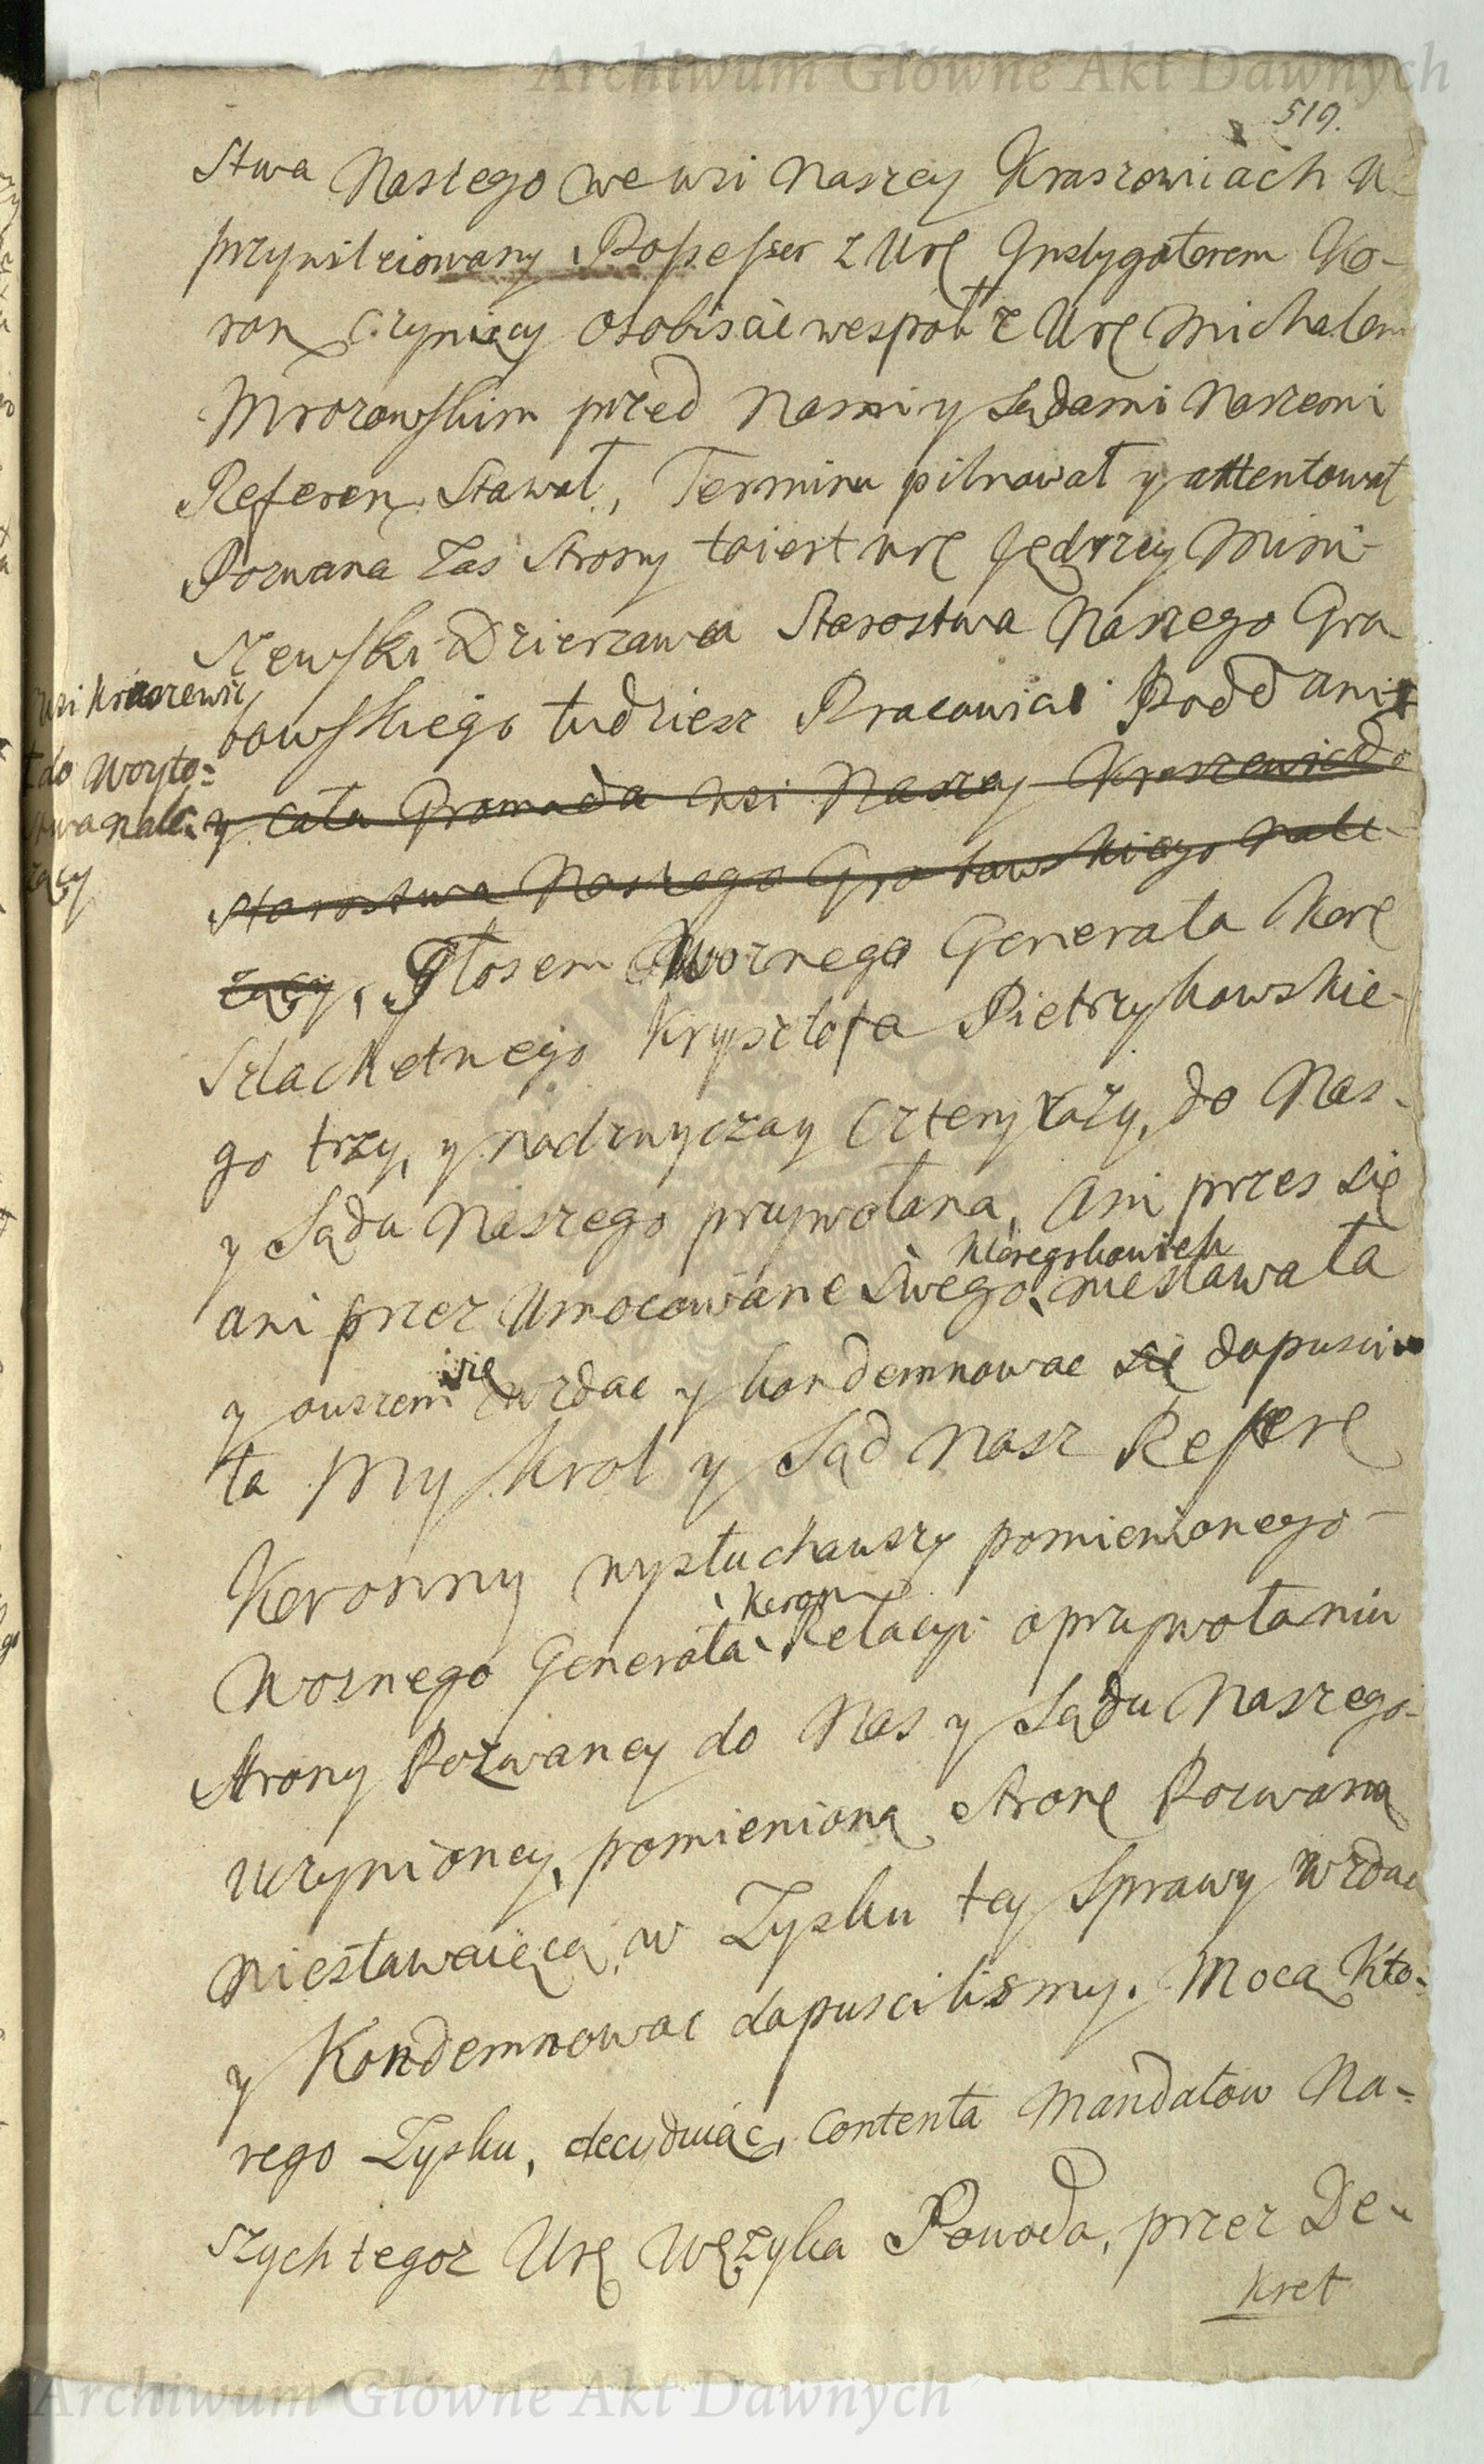 Archiwum Główne Akt Dawnych
519.
Stwa Naszego we wsi Naszey Kraszowicach u
przywileiowany Possessor z Urę Instygatorem Ko-
ron czyniący osobiscie wespoł z Urę Michałem
Mrozowskim przed Nami y Sądami Naszemi
Referen Stawał, Terminu pilnował y attentował
Pozwana zas Strony toiest Urę Jędrzey Mini-
szewski Dzierzawca Starostwa Naszego Gra
bowskiego tudziesz Pracowici Poddani
wsi Kraszewic
do Woyto=
stwa nale=
zący
y cała Gromada wsi Naszey Kraszewic do
Starostwa Naszego Grabowskiego nale-
zący, Głosem Woznego Generała Korę
Szlachetnego Krysztofa Pietrzykowskie-
go trzy, y nadzwyczay cztery razy, do Nas-
y Sądu Naszego przywołana, ani przes się
ktoregokowiek
ani przez Umocowane Swego niestawała
y owszem się wzdac y kondemnowac się dopusci
ła My Krol y Sąd Nasz Referę
Koronny wysłuchawszy pomienionego
Koron
Woznego Generała Relacyi o przywołaniu
Strony Pozwaney do Nas y Sądu Naszego
uczynioney, pomienioną Stronę Pozwaną
niestawaiącą w Zysku tey Sprawy wzdac
y Kondemnowac dopuscilismy. Mocą Kto=
rego Zysku, decyduiąc, Contenta Mandatow Na=
szych tegoz Urę Węzyka Powoda, przez De-
kret
Archiwum Główne Akt Dawnych